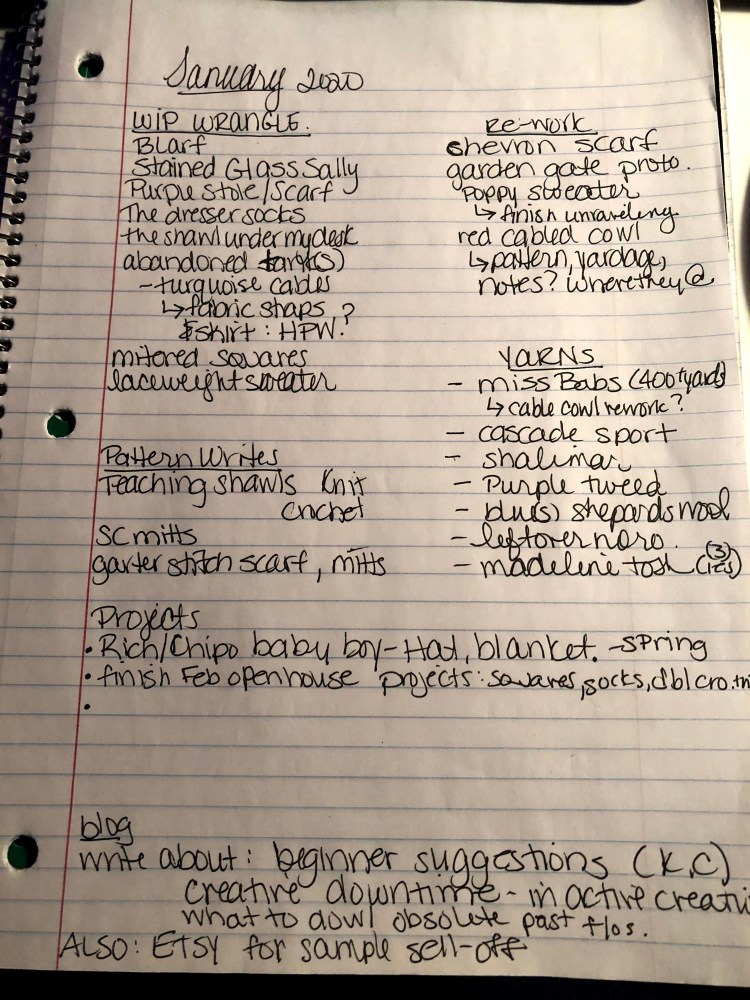 January 2020
WIP WRANGLE.
BLarf
Stained Glass Sally
Purple Stole/Scarf
The dresser socks
the shawl under my desk
abandoned tank(s)
- turquoise cables
↳ fabric straps ?
skirt : HPW?
mitered squares
laceweight sweater
Pattern Writes
Teaching shawls Knit
Crochet
SC mitts
garter stitch scarf, mitts
Re-work
chevron scarf
garden gate proto.
Poppy sweater
↳ finish unraveling
red cabled cowl
↳ pattern, yardage,
notes? where they @
YARNS
- miss Babs (400+yards)
↳ cable cowl rework?
- cascade sport
- shalimar
- Purple tweed
- blue(s) shepards wool
- leftover noro.
- madeline tosh (3)
Projects
• Rich/Chipo baby boy - Hat, blanket. - SPring
• finish Feb open house projects: squares, socks, dbl cro.
•
blog
write about: beginner suggestions (K,C)
creative downtime - in active
what to do w/ obsolete past f/os.
ALSO: ETSY for sample sell-off